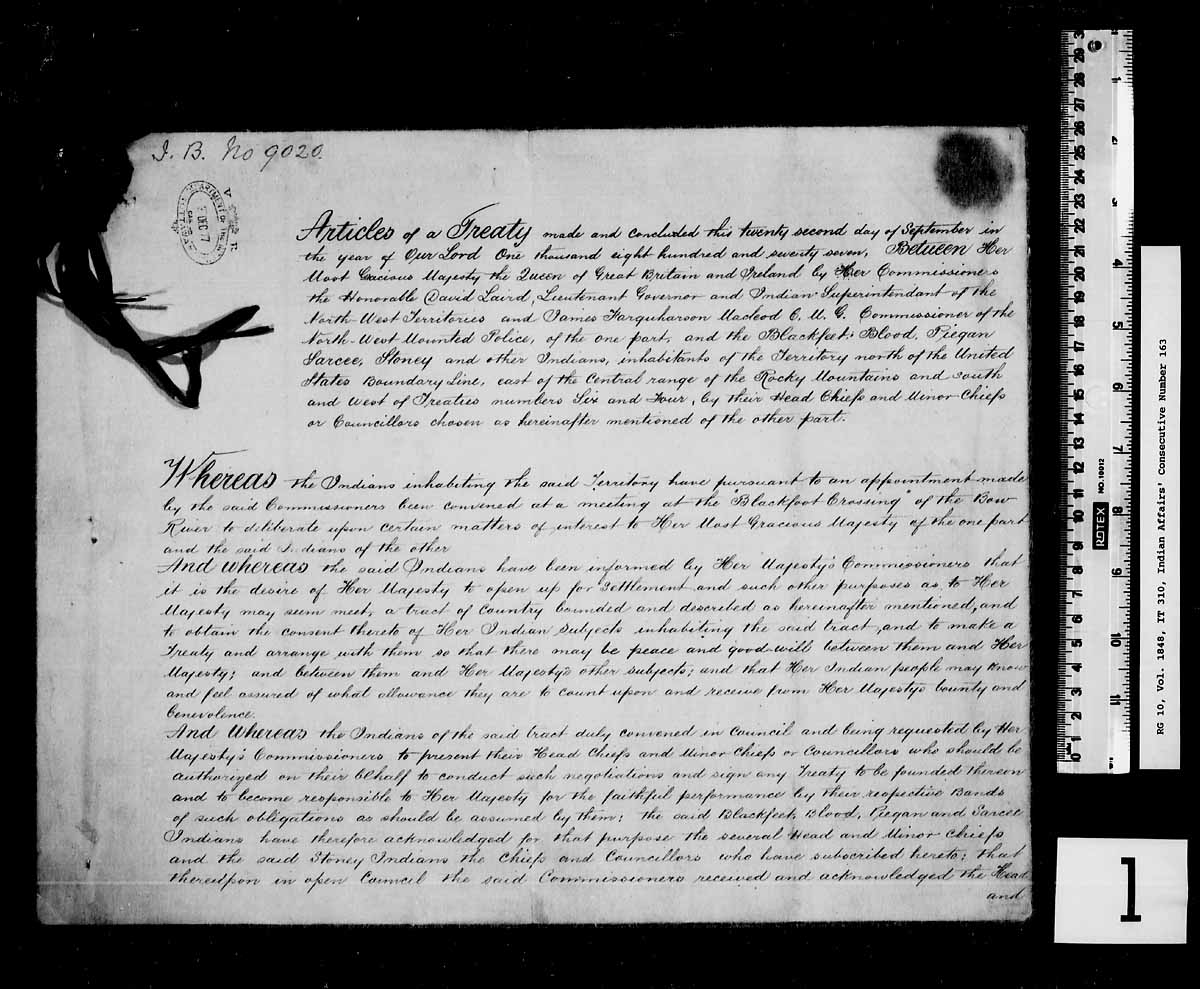 I. B. No 9020.
DEC 77
Articles of a Treaty made and concluded this twenty second day of September in
the year of Our Lord One thousand eight hundred and seventy seven, Between Her
Most Gracious Majesty the Queen of Great Britain and Ireland by Her Commissioners
the Honorable David Laird, Lieutenant Governor and Indian Superintendant of the
North-West Territories and James Farquharson Macleod C. M. G. Commissioner of the
North-West Mounted Police, of the one part, and the Blackfeet, Blood, Piegan
Sarcee, Stoney and other Indians, inhabitants of the Territory north of the United
States Boundary Line, east of the Central range of the Rocky Mountains and south
and west of Treaties numbers Six and Four, by their Head Chiefs and Minor Chiefs
or Councillors chosen as hereinafter mentioned of the other part.
Whereas the Indians inhabiting the said Territory have pursuant to an appointment made
by the said Commissioners been convened at a meeting at the "Blackfoot Crossing" of the Bow
River to deliberate upon certain matters of interest to Her Most Gracious Majesty of the one part
and the said Indians of the other
And whereas the said Indians have been informed by Her Majesty's Commissioners that
it is the desire of Her Majesty to open up for Settlement and such other purposes as to Her
Majesty may seem meet, a tract of Country bounded and described as hereinafter mentioned, and
to obtain the consent thereto of Her Indian Subjects inhabiting the said tract, and to make a
Treaty and arrange with them so that there may be peace and good will between them and Her
Majesty; and between them and Her Majesty's other subjects; and that Her Indian people may know
and feel assured of what allowance they are to count upon and receive from Her Majesty's bounty and
benevolence.
And Whereas the Indians of the said tract duly convened in Council and being requested by Her
Majesty's Commissioners to present their Head Chiefs and Minor Chiefs or Councillors who should be
authorized on their behalf to conduct such negotiations and sign any Treaty to be founded thereon
and to become responsible to Her Majesty for the faithful performance by their respective Bands
of such obligations as should be assumed by them; the said Blackfeet, Blood, Piegan and Sarcee
Indians have therefore acknowledged for that purpose the several Head and Minor Chiefs
and the said Stoney Indians the Chiefs and Councillors who have subscribed hereto; that
thereupon in open Council the said Commissioners received and acknowledged the Head
and
RG 10, Vol. 1848, IT 310, Indian Affairs' Consecutive Number 163
ROTEX
NO.10012
1